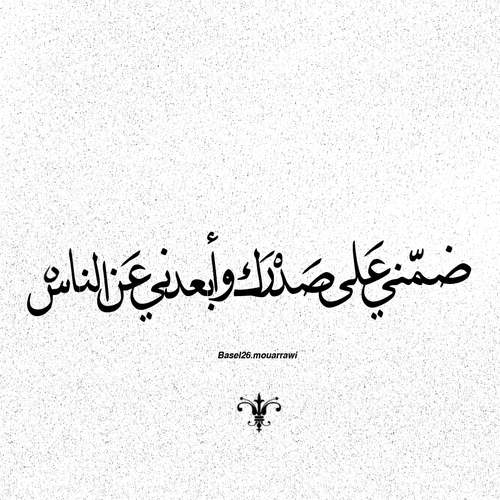 ضمّني عَلى صَدْرَك وأبعدني عَن الناسْ
Basel26.mouarrawi